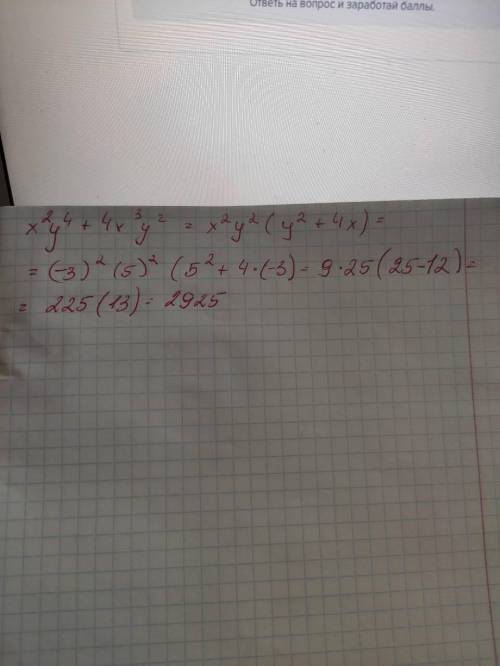 Ответь на вопрос и заработай баллы.
x²y⁴ + 4x³y² = x²y² (y² + 4x) =
= (-3)² (5)² (5² + 4·(-3) = 9·25 (25-12) =
= 225 (13) = 2925